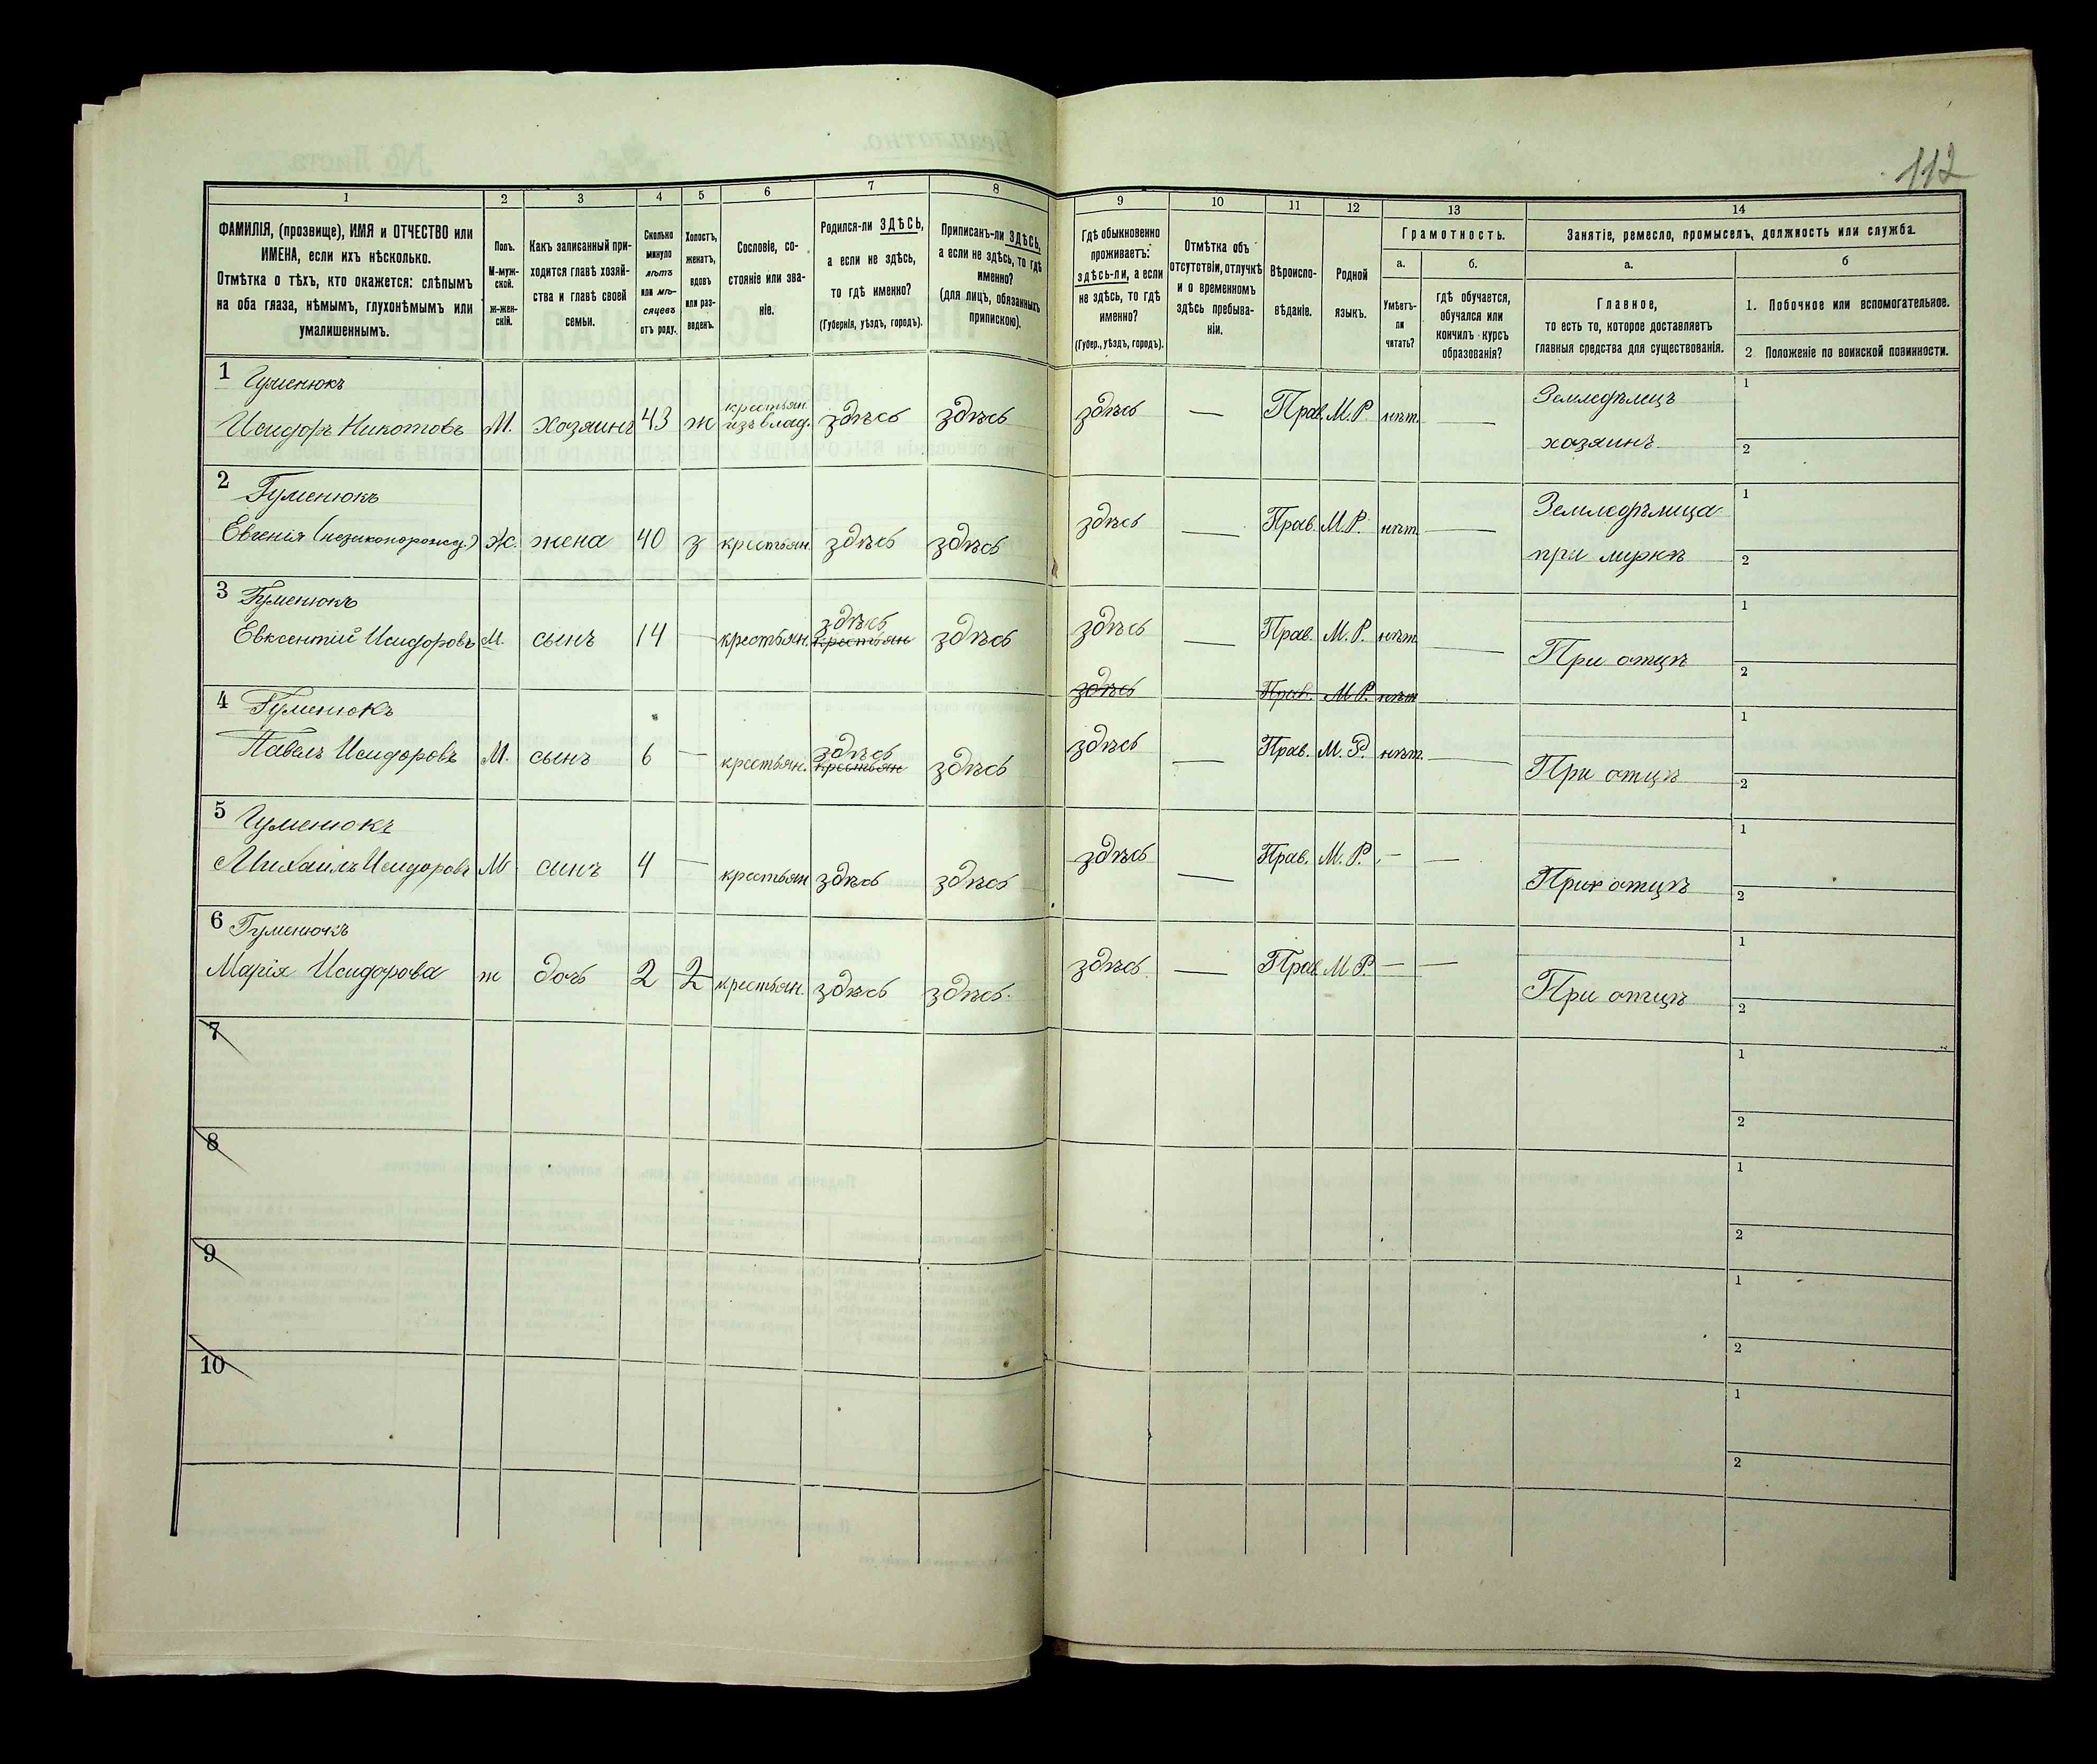 112
1
2
3
4
5
6
7
8
9
10
11
12
13
14
ФАМИЛІЯ, (прозвище), ИМЯ и ОТЧЕСТВО или
ИМЕНА, если ихъ нѣсколько.
Отмѣтка о тѣхъ, кто окажется: слѣпымъ
на оба глаза, нѣмымъ, глухонѣмымъ или
умалишеннымъ.
Полъ.
М-муж-
ской.
ж-жен-
скій.
Какъ записанный при-
ходится главѣ хозяй-
ства и главѣ своей
семьи.
Сколько
минуло
лѣтъ
или мѣ-
сяцевъ
отъ роду.
Холостъ,
женатъ,
вдовъ
или раз-
веденъ.
Сословіе, со-
стояніе или зва-
ніе.
Родился-ли ЗДѢСЬ,
а если не здѣсь,
то гдѣ именно?
(Губернія, уѣздъ, городъ).
Приписанъ-ли ЗДѢСЬ,
а если не здѣсь, то гдѣ
именно?
(для лицъ, обязанныхъ
припискою).
Гдѣ обыкновенно
проживаетъ:
здѣсь-ли, а если
не здѣсь, то гдѣ
именно?
(Губер., уѣздъ, городъ).
Отмѣтка объ
отсутствіи, отлучкѣ
и о временномъ
здѣсь пребыва-
ніи.
Вѣроиспо-
вѣданіе.
Родной
языкъ.
Грамотность.
а.
Умѣетъ-
ли
читать?
б.
гдѣ обучается,
обучался или
кончилъ курсъ
образованія?
Занятіе, ремесло, промыселъ, должность или служба.
а.
Главное,
то есть то, которое доставляетъ
главныя средства для существованія.
б
1. Побочное или вспомогательное.
2 Положеніе по воинской повинности.
1 Гуменюкъ
Исидоръ Никитовъ М. хозяинъ 43 ж крестьян. изъ влад. здѣсь здѣсь здѣсь — Прав. М.Р. нѣт. — Земледѣлецъ
хозяинъ
1
2
2 Гуменюкъ
Евгенія (незаконорожд.) Ж. жена 40 з крестьян. здѣсь здѣсь здѣсь — Прав. М.Р. нѣт. — Земледѣлица
при мужѣ
1
2
3 Гуменюкъ
Евксентій Исидоровъ М. сынъ 14 — крестьян. здѣсь крестьян здѣсь здѣсь — Прав. М.Р. нѣт. — При отцѣ
1
2
здѣсь Прав. М.Р. нѣт
4 Гуменюкъ
Павелъ Исидоровъ М. сынъ 6 — крестьян. здѣсь крестьян здѣсь здѣсь — Прав. М.Р. нѣт. — При отцѣ
1
2
5 Гуменюкъ
Михаилъ Исидоровъ М сынъ 4 — крестьян здѣсь здѣсь здѣсь — Прав. М.Р. — — При отцѣ
1
2
6 Гуменюкъ
Марія Исидорова ж дочь 2 2 крестьян. здѣсь здѣсь. здѣсь. — Прав. М.Р. — — При отцѣ
1
2
7
1
2
8
1
2
9
1
2
10
1
2